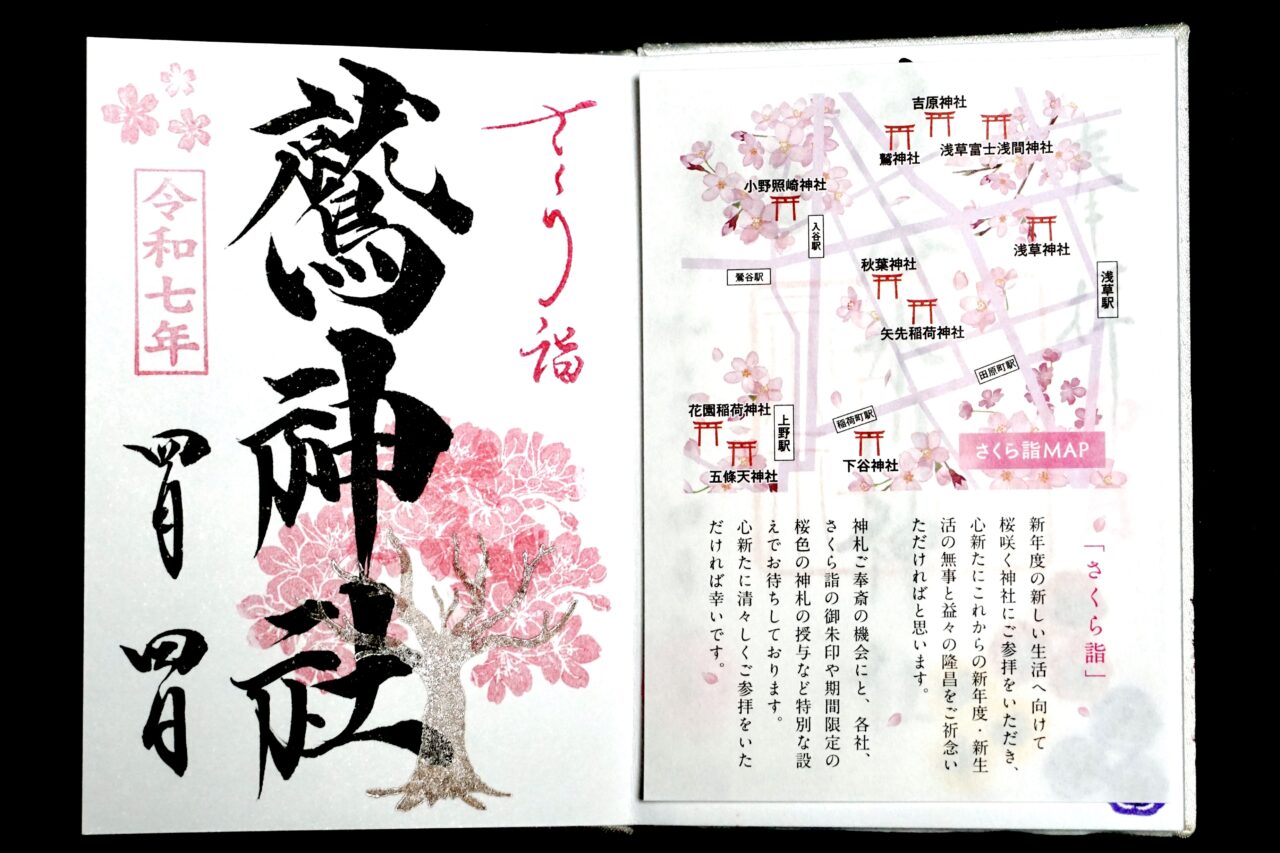 さくら詣
鷲神社
令和七年
四月
四日
吉原神社
鷲神社
浅草富士浅間神社
小野照崎神社
入谷駅
浅草神社
鶯谷駅
秋葉神社
浅草駅
矢先稲荷神社
田原町駅
花園稲荷神社
上野駅
稲荷町駅
五條天神社
下谷神社
さくら詣MAP
「さくら詣」
新年度の新しい生活へ向けて
桜咲く神社にご参拝をいただき、
心新たにこれからの新年度・新生
活の無事と益々の隆昌をご祈念い
ただければと思います。
神札ご奉斎の機会にと、各社、
さくら詣の御朱印や期間限定の
桜色の神札の授与など特別な設
えでお待ちしております。
心新たに清々しくご参拝をいた
だければ幸いです。